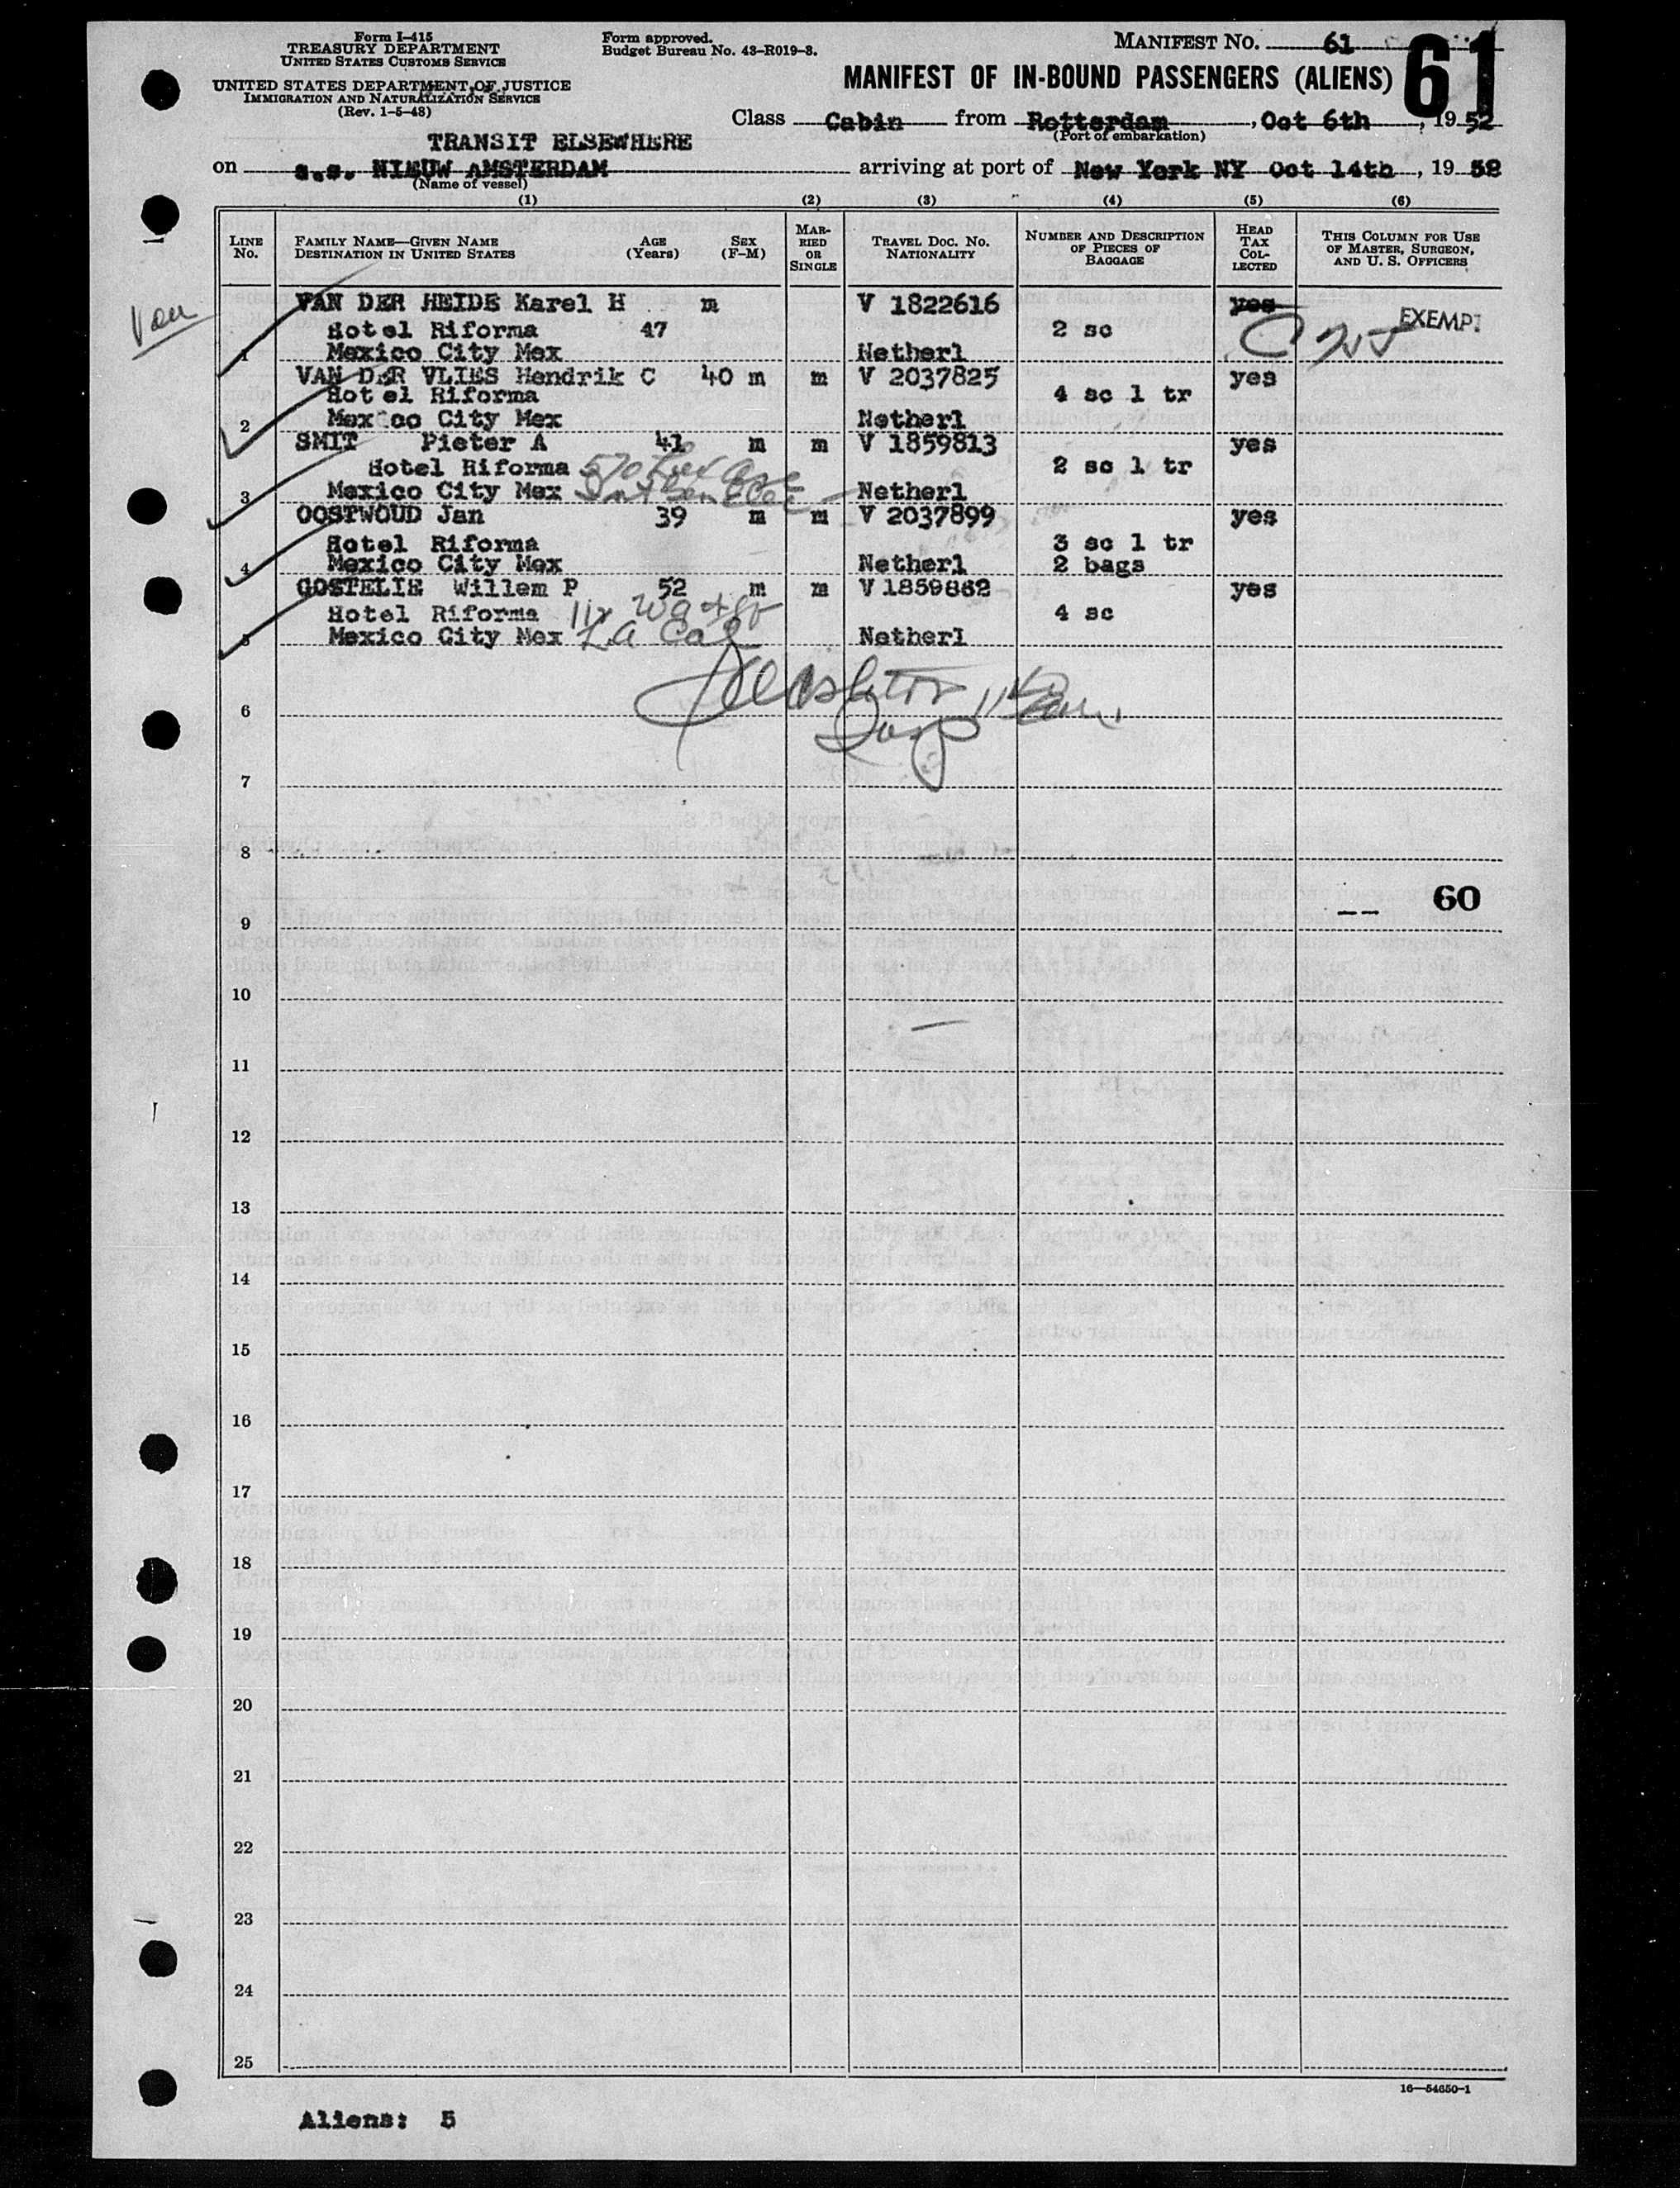 Form I-415
TREASURY DEPARTMENT
UNITED STATES CUSTOMS SERVICE
UNITED STATES DEPARTMENT OF JUSTICE
IMMIGRATION AND NATURALIZATION SERVICE
(Rev. 1-5-48)
Form approved.
Budget Bureau No. 43-R019-3.
MANIFEST NO. 61
61
MANIFEST OF IN-BOUND PASSENGERS (ALIENS)
Class Cabin from Rotterdam, Oct 6th, 1952
(Port of embarkation)
TRANSIT ELSEWHERE
on s.s. NIEUW AMSTERDAM arriving at port of New York NY Oct 14th, 1952
(Name of vessel)
(1) (2) (3) (4) (5) (6)
LINE NO.
FAMILY NAME—GIVEN NAME
DESTINATION IN UNITED STATES
AGE (Years)
SEX (F-M)
MARRIED OR SINGLE
TRAVEL DOC. NO.
NATIONALITY
NUMBER AND DESCRIPTION OF PIECES OF BAGGAGE
HEAD TAX COLLECTED
THIS COLUMN FOR USE OF MASTER, SURGEON, AND U. S. OFFICERS
Van
VAN DER HEIDE Karel H m V 1822616 yes EXEMPT
Hotel Riforma 47 2 sc
1 Mexico City Mex Netherl
VAN DER VLIES Hendrik C 40 m m V 2037825 yes
Hotel Riforma 4 sc 1 tr
2 Mexico City Mex Netherl
SMIT Pieter A 41 m m V 1859813 yes
Hotel Riforma 570 2 sc 1 tr
3 Mexico City Mex Netherl
OOSTWOUD Jan 39 m m V 2037899 yes
Hotel Riforma 3 sc 1 tr
4 Mexico City Mex Netherl 2 bags
GOSTELIE Willem P 52 m m V 1859862 yes
Hotel Riforma 4 sc
5 Mexico City Mex L.A Cal Netherl
6
7
8
9
-- 60
10
11
12
13
14
15
16
17
18
19
20
21
22
23
24
25
16—54650-1
Aliens: 5